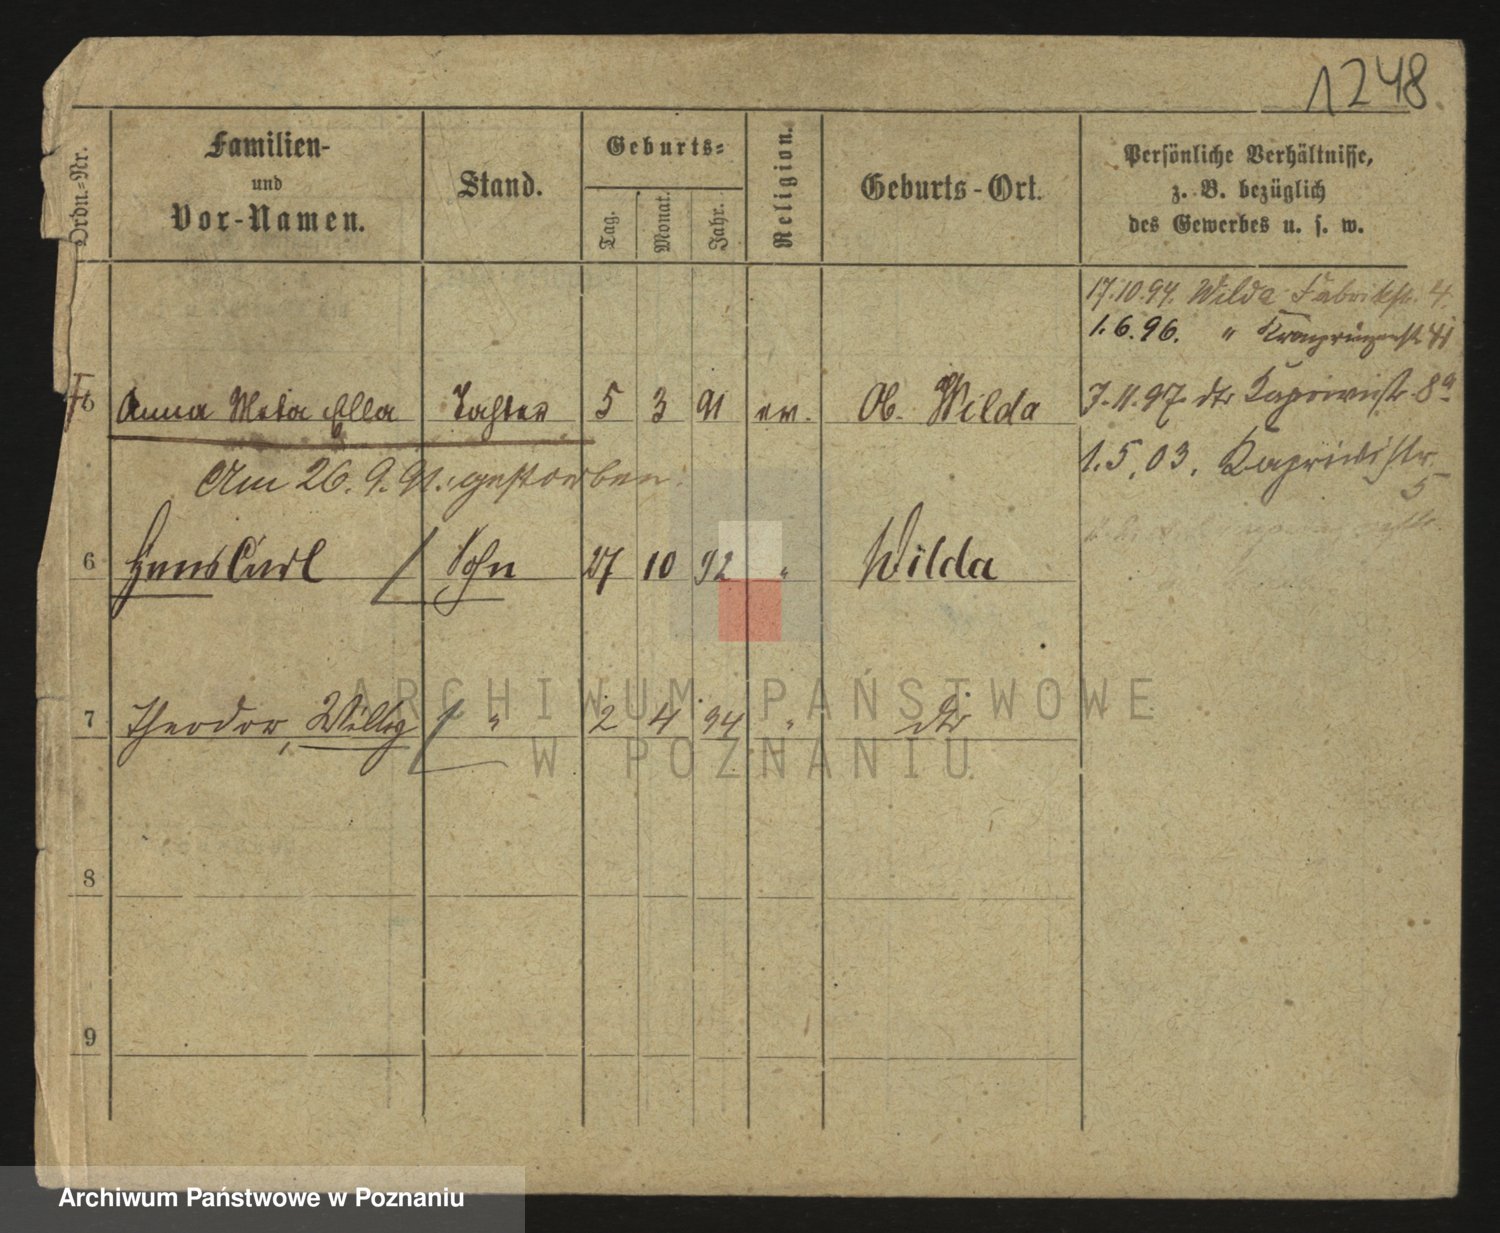 1248.
Ordn.-Nr.
Familien-
und
Vor-Namen.
Stand.
Geburts-
Tag.
Monat.
Jahr.
Religion.
Geburts-Ort.
Persönliche Verhältnisse,
z. B. bezüglich
des Gewerbes u. s. w.
17.10.94. Wilda Fabrikstr. 4.
1.6.96. " Kronprinzenstr. 41
5 Anna Meta Ella Tochter 5 3 91 ev. Ob. Wilda
7.11.97. dto Kaprivistr. 8a
Am 26.9.91. gestorben.
1.5.03. Kaprivistr.
5
6 Hans Carl / Sohn 27 10 92 " Wilda
7 Theodor, Willy / " 2 4 94 " dto
8
9
ARCHIWUM PAŃSTWOWE
W POZNANIU
Archiwum Państwowe w Poznaniu